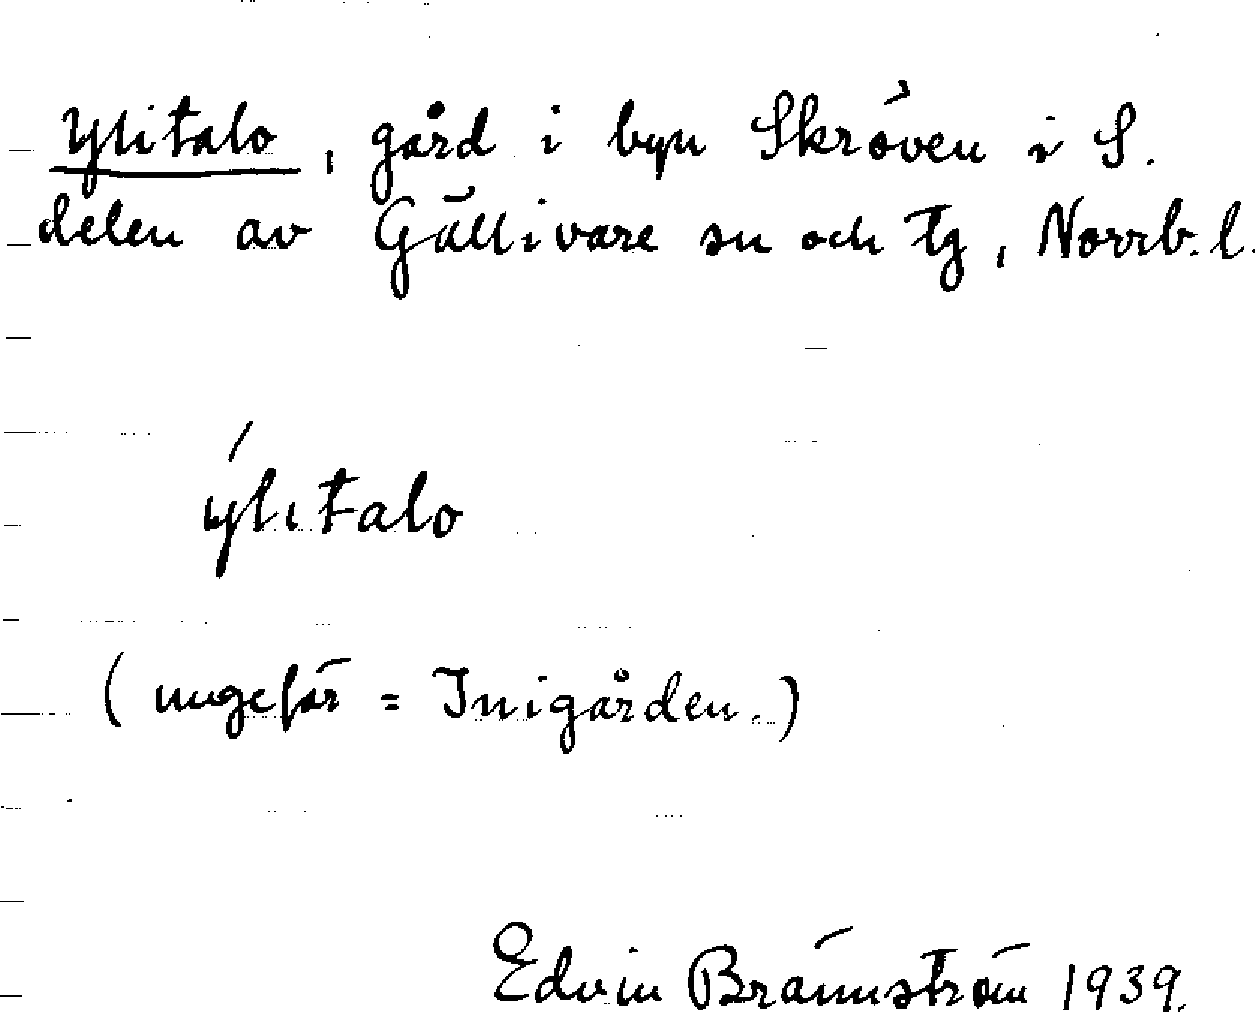 Ylitalo, gård i byn Skröven i S.
delen av Gällivare sn och tg, Norrb. l.
ýlitalo
(ungefär = Inigården.)
Edvin Brännström 1939.